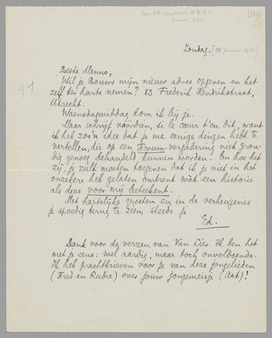 Zondag. [10 januari 19
Beste Menno,
Wil je Bouws mijn nieuw adres opgeven en het
zelf ter harte nemen? 83 Frederik Hendrikstraat,
Utrecht.
Woensdagmiddag kom ik bij je.
Maar schrijf noordien, si le cœur t'en dit, want
ik heb zoo'n idee dat je me eenige dingen hebt te
vertellen, die op een Forum vergadering niet gron-
dig genoeg behandeld kunnen worden. En hoe het
zij, je zult moeten toegeven dat ik je niet in het
onzekere heb gelaten omtrent wat een historie
als deze voor mij beteekent.
Met hartelijke groeten en in de verheugenis
je spoedig terug te zien steeds je
Ed.
Dank voor de verzen van Van Lier. Ik ben het
met je eens: wel aardig, maar toch onvoldoende.
Ik heb prachtbrieven voor je van deze jongelieden
(Fred en Rudie) over jouw jongemeisje (Aat)!